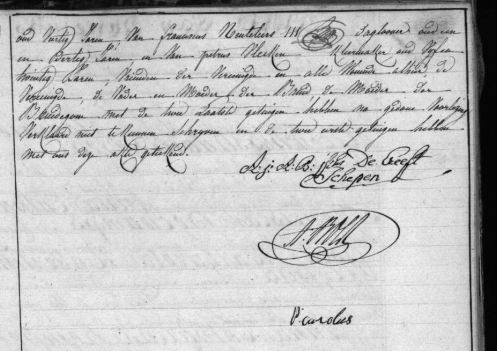 oud Vertig Jaren, Van franciscus Meuteleers Dagloner oud een
en Dertig Jaren en Van petrus Vlecken Kleermaker oud Vijf en
Twintig Jaren, Vrienden der Vereenigde en alle Wonende alhier de
Vereenigde, de Vader en Moeder der Bruid de Moeder der
Bruidegom met de twee Laatste getuigen hebben na gedane Voorlezing
Verklaard niet te Kunnen Schryven en de twee eerste getuigen hebben
met ons deze akte getekend.
A. j. A. B. De Creeft
Schepen
P. carolus